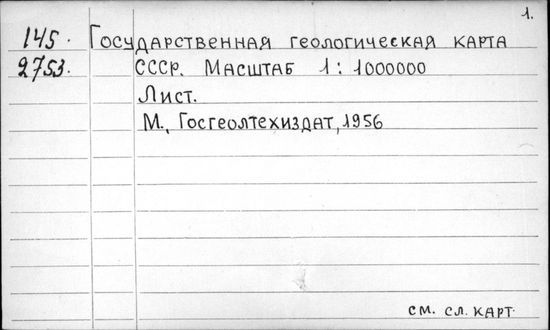 1.
145. Государственная геологическая карта
2753. СССР. Масштаб 1:1000000
Лист.
М., Госгеолтехиздат, 1956
см. сл. карт.